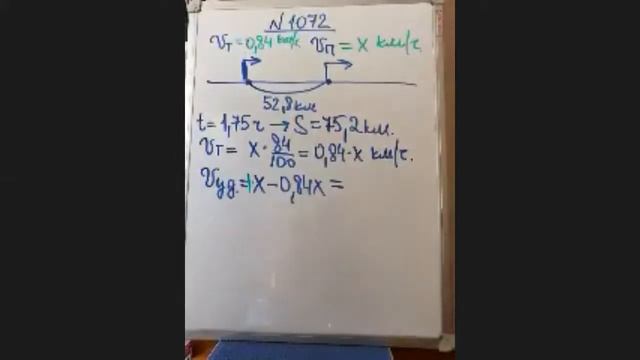 N 1072
Vт = 0,84 км/ч Vп = x км/ч
52,8 км
t = 1,75 ч → S = 75,2 км.
Vт = x · 84/100 = 0,84 · x км/ч.
Vуд. = 1·x − 0,84x =